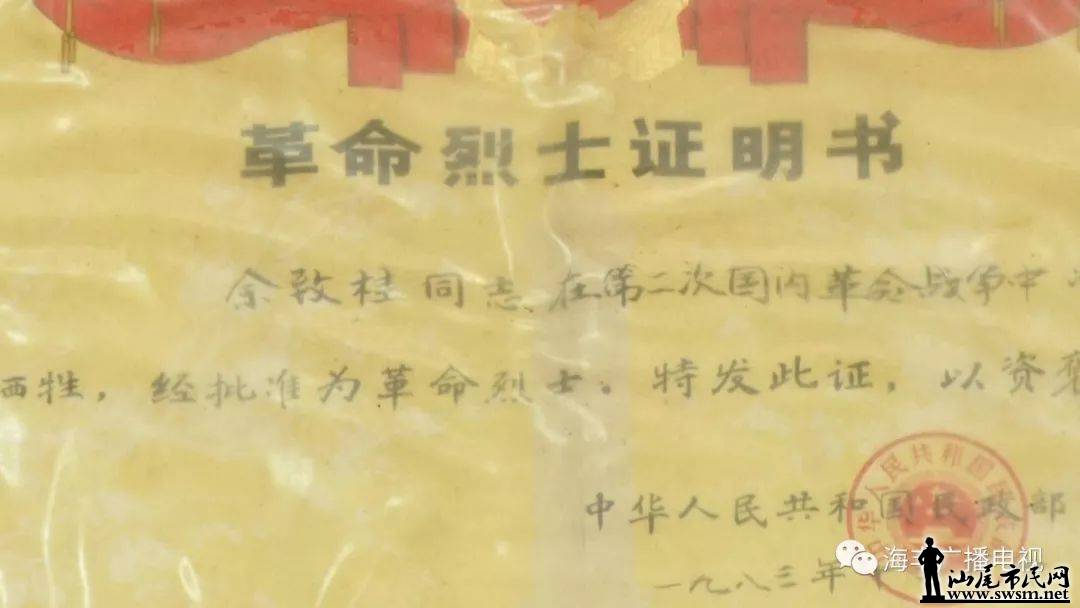 革命烈士证明书
余致桂同志在第二次国内革命战争中
牺牲，经批准为革命烈士。特发此证，以资褒
中华人民共和国民政部
一九八三年
中华人民共和国民政部
海丰广播电视
汕尾市民网
www.swsm.net